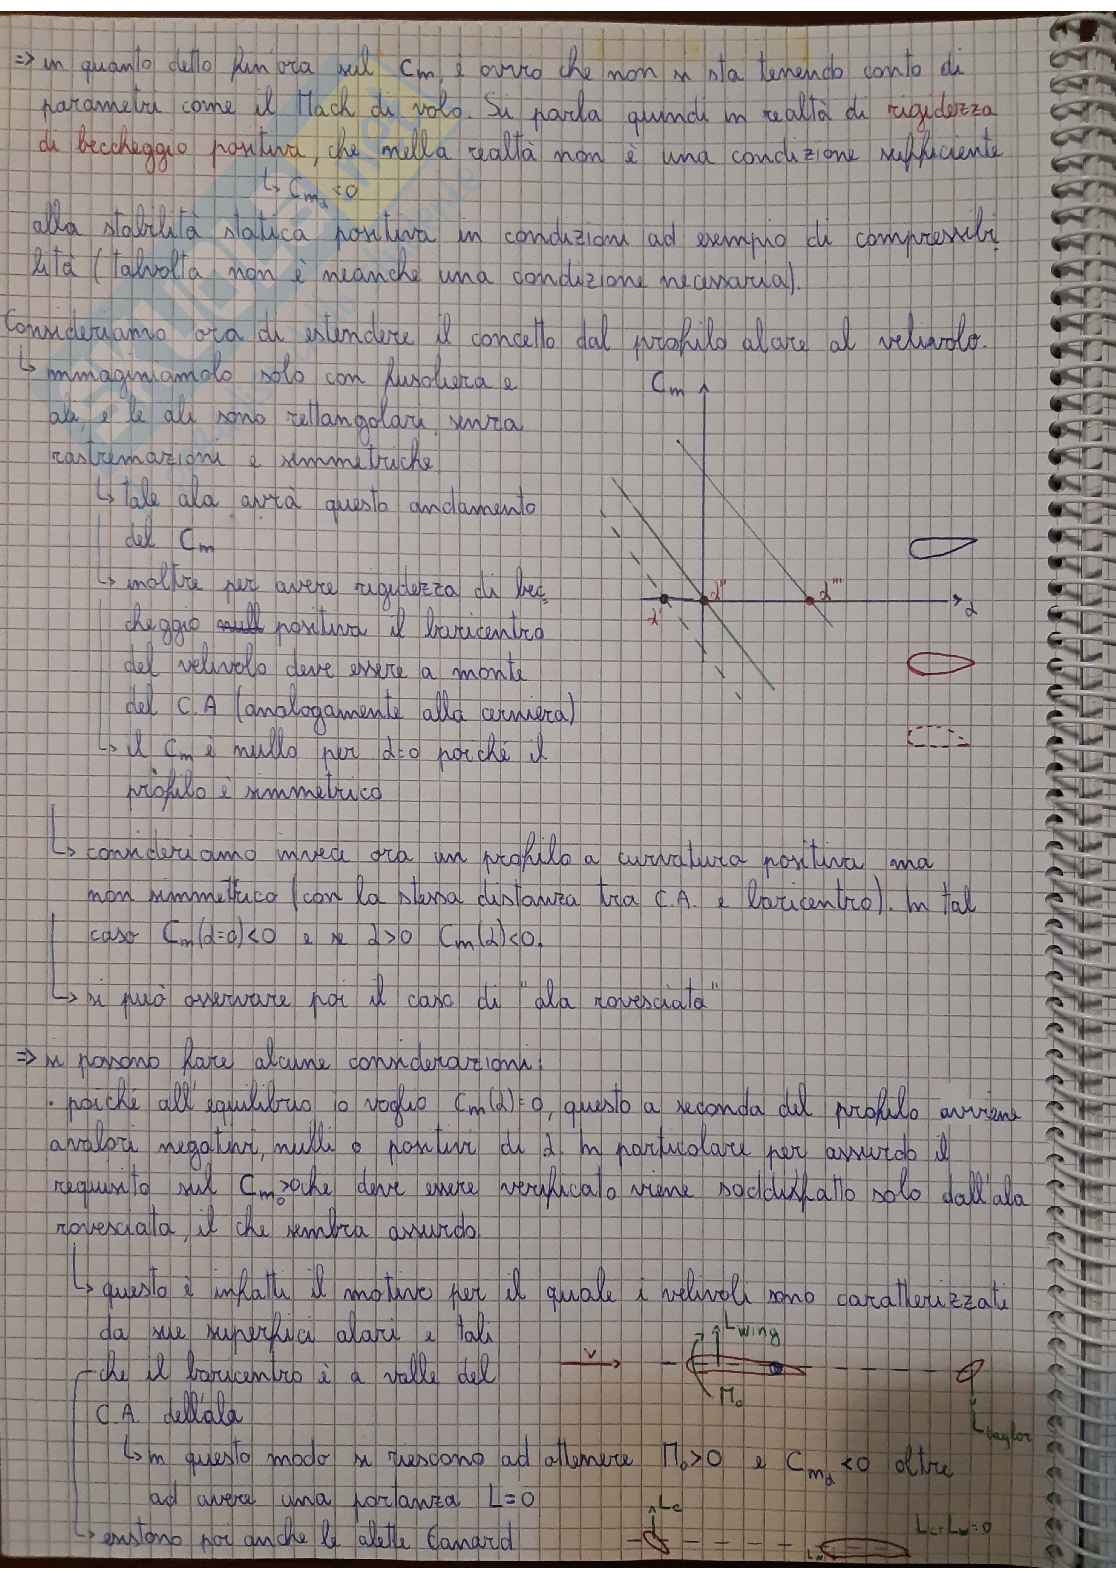 => in quanto detto fin ora sul Cm, è ovvio che non si sta tenendo conto di
parametri come il Mach di volo. Si parla quindi in realtà di rigidezza
di beccheggio positiva, che nella realtà non è una condizione sufficiente
↳ Cmα<0
alla stabilità statica positiva in condizioni ad esempio di compressibi
lità (talvolta non è neanche una condizione necessaria).
Consideriamo ora di estendere il concetto dal profilo alare al velivolo.
↳ immaginiamolo solo con fusoliera e
ali, e le ali sono rettangolari, senza
rastremazioni e simmetriche
↳ tale ala avrà questo andamento
del Cm
↳ inoltre per avere rigidezza di bec
cheggio positiva il baricentro
del velivolo deve essere a monte
del C.A (analogamente alla cerniera)
↳ il Cm è nullo per α=0 poiché il
profilo è simmetrico
Cm
α'
α''
α'''
α
↳ consideriamo invece ora un profilo a curvatura positiva ma
non simmetrico (con la stessa distanza tra C.A. e baricentro). In tal
caso Cm(α=0)<0 e se α>0 Cm(α)<0.
↳ si può osservare poi il caso di "ala rovesciata"
=> si possono fare alcune considerazioni:
· poiché all'equilibrio io voglio Cm(α)=0, questo a seconda del profilo avviene
a valori negativi, nulli o positivi di α. In particolare per assurdo il
requisito sul Cm0>0 che deve essere verificato viene soddisfatto solo dall'ala
rovesciata, il che sembra assurdo.
↳ questo è infatti il motivo per il quale i velivoli sono caratterizzati
da sue superfici alari e tali
che il baricentro è a valle del
C.A. dell'ala
V
Lwing
M0
Ltaylor
↳ in questo modo si riescono ad ottenere M0>0 e Cmα<0 oltre
ad avere una portanza L=0
↳ esistono poi anche le alette Canard
Lc
Lw
Lc+Lw=0